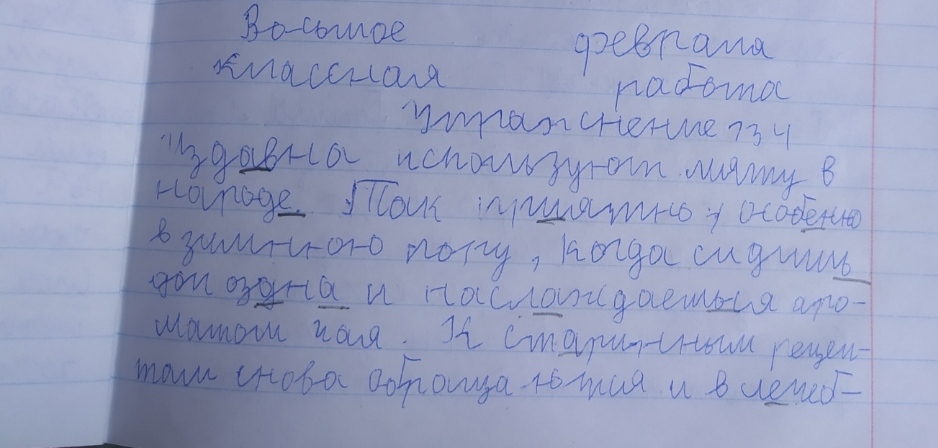 Восьмое февраля
Классная работа
Упражнение 734
Издавна используют мяту в
народе. Так приятно, особенно
в зимнюю пору, когда сидишь
допоздна и наслаждаешься аро-
матом чая. К старинным рецеп-
там снова обращаются и в лечеб-